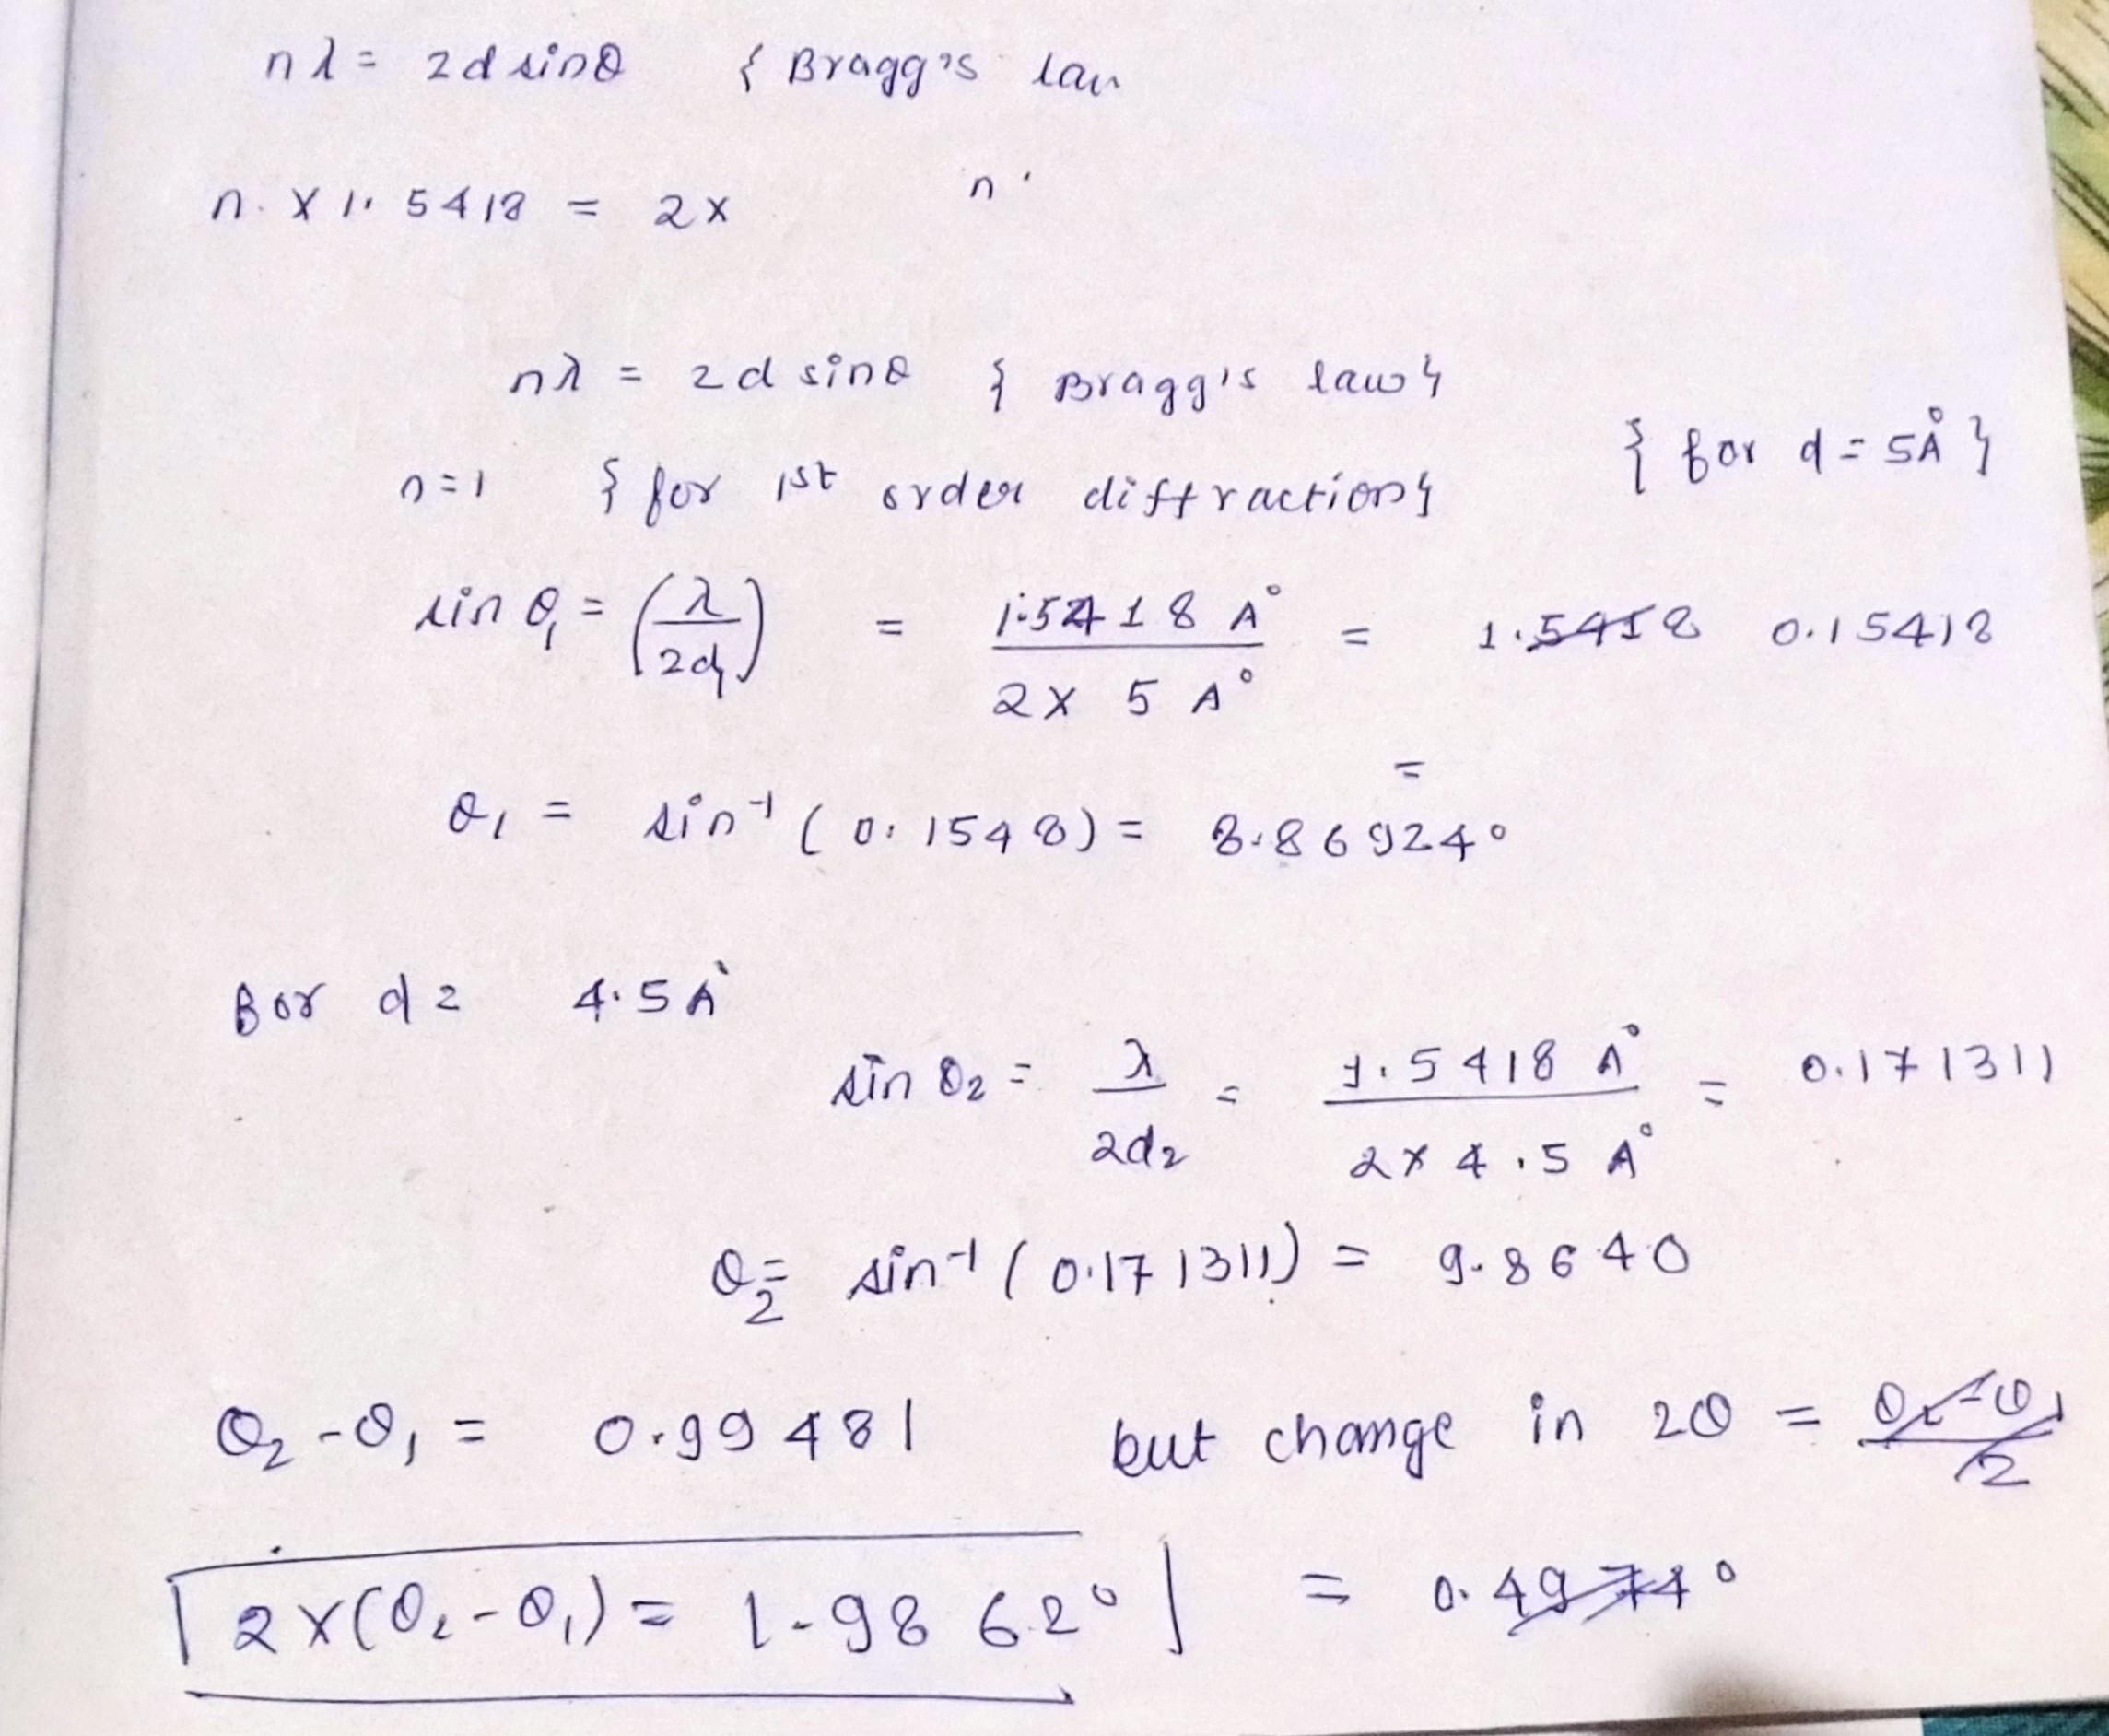 nλ = 2d sinθ { Bragg's law
n. X 1.5418 = 2x n.
nλ = 2d sinθ { Bragg's law}
n=1 { for 1st order diffraction} { for d = 5Å }
sin θ₁ = (λ/2d₁) = 1.5418 A° / 2X 5 A° = 1.5418 0.15418
=
θ₁ = sin⁻¹ ( 0.1548) = 8.86924°
for d = 4.5 Å
sin θ₂ = λ/2d₂ = 1.5418 A° / 2x 4.5 A° = 0.171311
θ₂ = sin⁻¹ ( 0.171311) = 9.8640
θ₂ - θ₁ = 0.99481 but change in 2θ = θ₂-θ₁/2
2 X(θ₂ - θ₁) = 1.9862° = 0.4974°